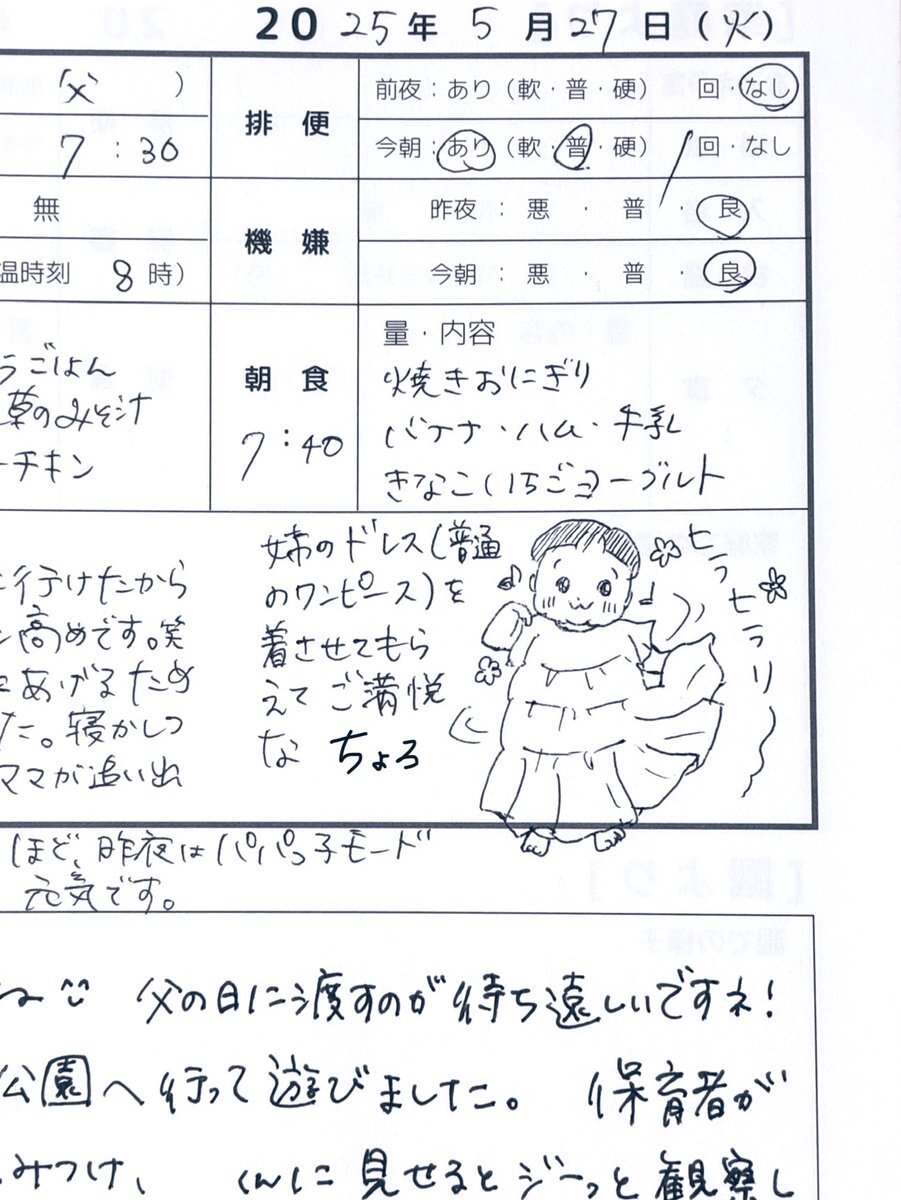 2025年 5月27日(火)
(父 )
7:30
排便
前夜:あり(軟・普・硬) 回・なし
今朝:あり(軟・普・硬) 1回・なし
無
温時刻 8時)
機嫌
昨夜:悪・普・良
今朝:悪・普・良
うごはん
草のみそ汁
ーチキン
朝食
7:40
量・内容
焼きおにぎり
バナナ・ハム・牛乳
きなこいちごヨーグルト
に行けたから
ン高めです。笑
にあげるため
た。寝かしつ
ママが追い出
姉のドレス(普通
のワンピース)を
着させてもら
えてご満悦
な ちょろ
ヒラヒラリ
ほど、昨夜はパパっ子モード
元気です。
ね 父の日に渡すのが待ち遠しいですネ!
公園へ行って遊びました。 保育者が
みつけ、 くんに見せるとジーっと観察し
[園より]
園での様子